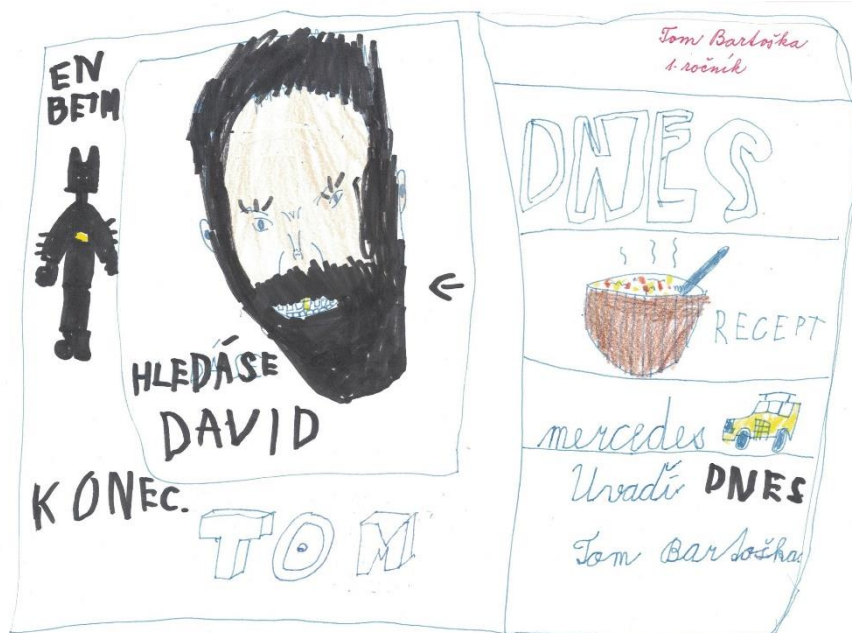 EN
BETM
HLEDÁSE
DAVID
KONEC.
TOM
Tom Bartoška
1. ročník
DNES
RECEPT
mercedes
Uvadí DNES
Tom Bartoška